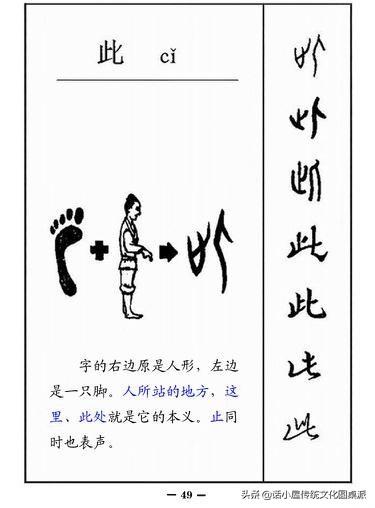 此 cǐ
字的右边原是人形，左边
是一只脚。人所站的地方，这
里、此处就是它的本义。止同
时也表声。
此
此
此
此
— 49 —
头条 @诺小屋传统文化圆桌派